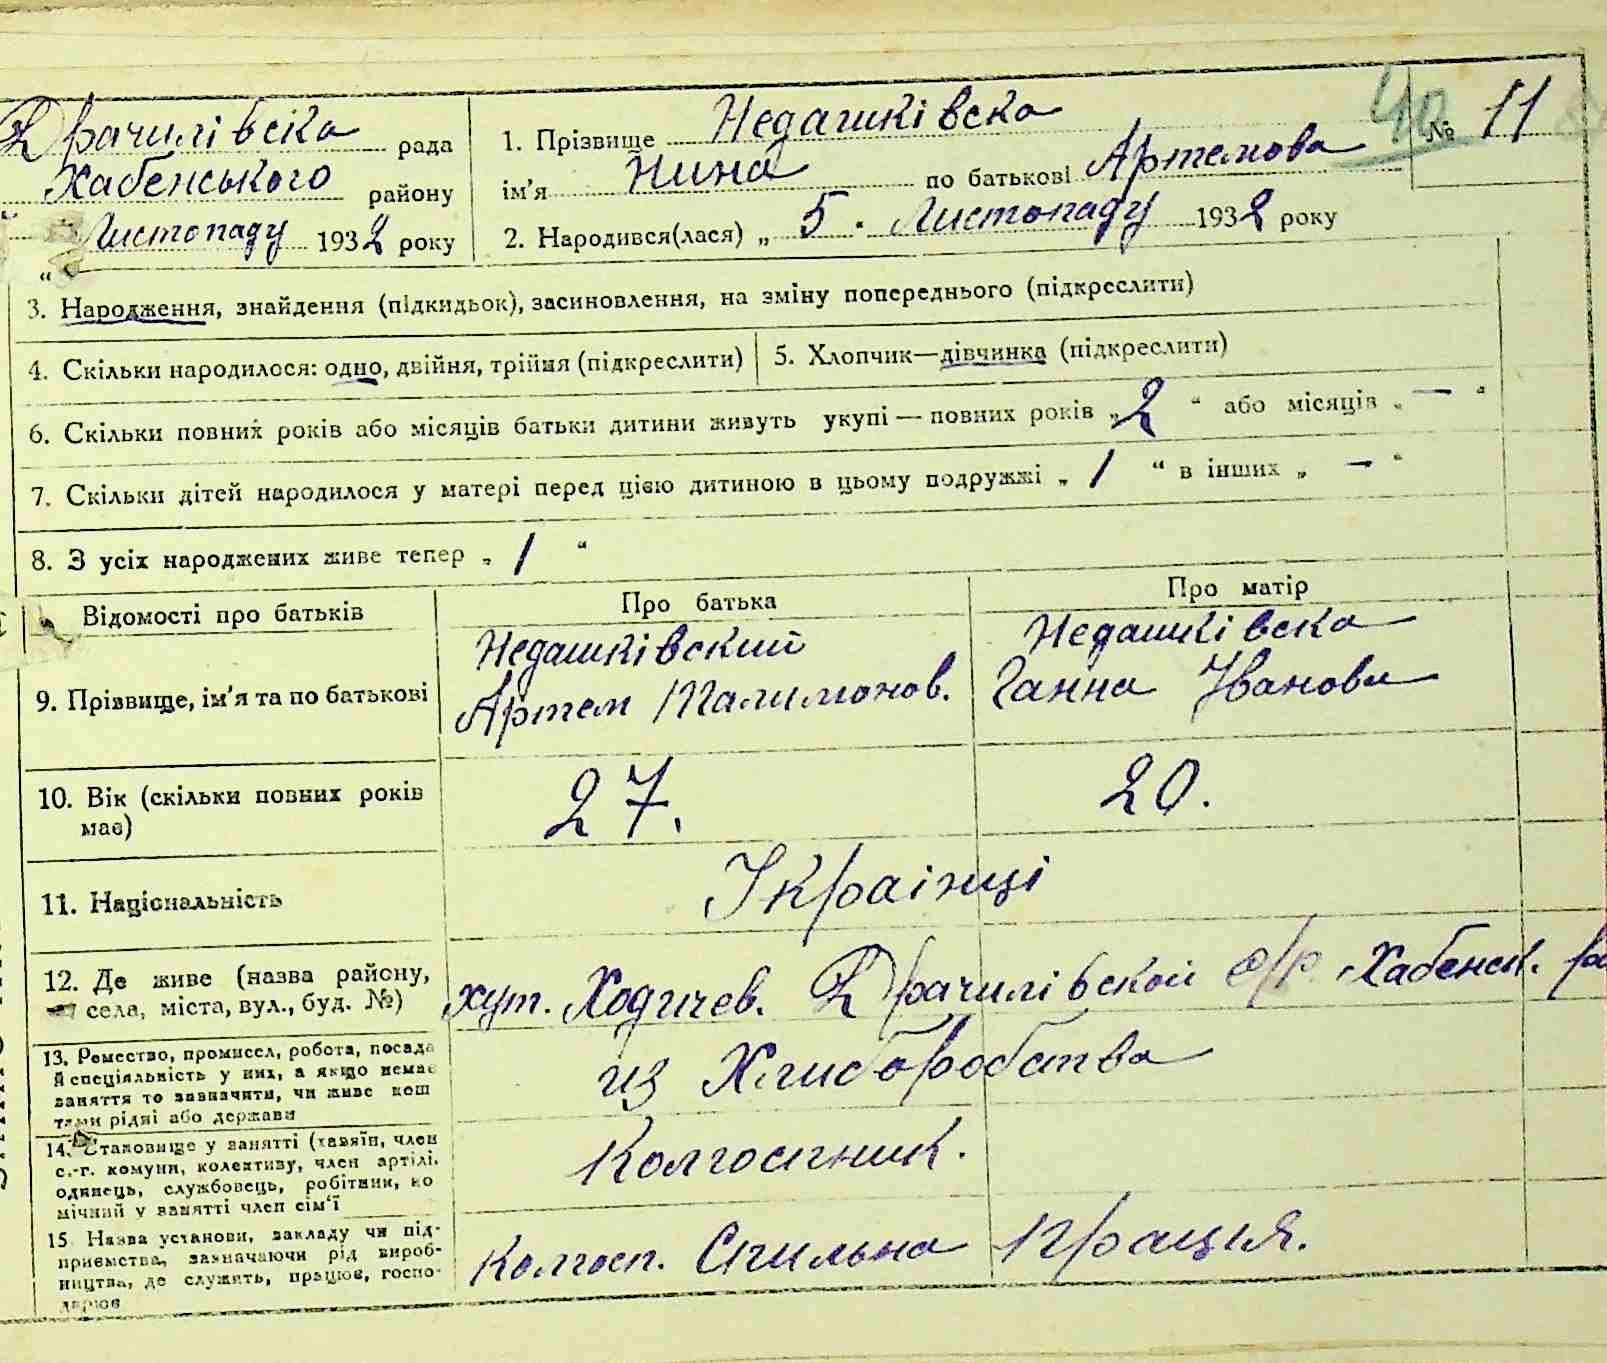 Драчилівска рада
Хабенського району
Листопаду 1932 року
1. Прізвище Недашківска
№ 11
40
ім'я Нина по батькові Артемова
2. Народився(лася) „ 5 . Листопаду 1932 року
3. Народження, знайдення (підкидьок), засиновлення, на зміну попереднього (підкреслити)
4. Скільки народилося: одно, двійня, трійня (підкреслити)
5. Хлопчик—дівчинка (підкреслити)
6. Скільки повних років або місяців батьки дитини живуть укупі — повних років „ 2 “ або місяців „ — “
7. Скільки дітей народилося у матері перед цією дитиною в цьому подружжі „ 1 “ в інших „ — “
8. З усіх народжених живе тепер „ 1 “
Відомості про батьків
Про батька
Про матір
9. Прізвище, ім'я та по батькові
Недашківский
Артем Палимонов.
Недашківска
Ганна Іванова
10. Вік (скільки повних років
має)
27.
20.
11. Національність
Українці
12. Де живе (назва району,
села, міста, вул., буд. №)
хут. Ходичев. Драчилівской с/р. Хабенск. ра
13. Ремество, промисел, робота, посада
й спеціяльність у них, а якщо немає
заняття то зазначити, чи живе кош
тами рідні або держави
из Хлиборобства
14. Становище у занятті (хазяїн, член
с.-г. комуни, колективу, член артілі,
одинець, службовець, робітник, по
мічний у занятті член сім'ї
Колгоспник.
15. Назва установи, закладу чи під-
приємства, зазначаючи рід вироб-
ництва, де служить, працює, госпо-
дарює
Колгосп. Спильна Праця.